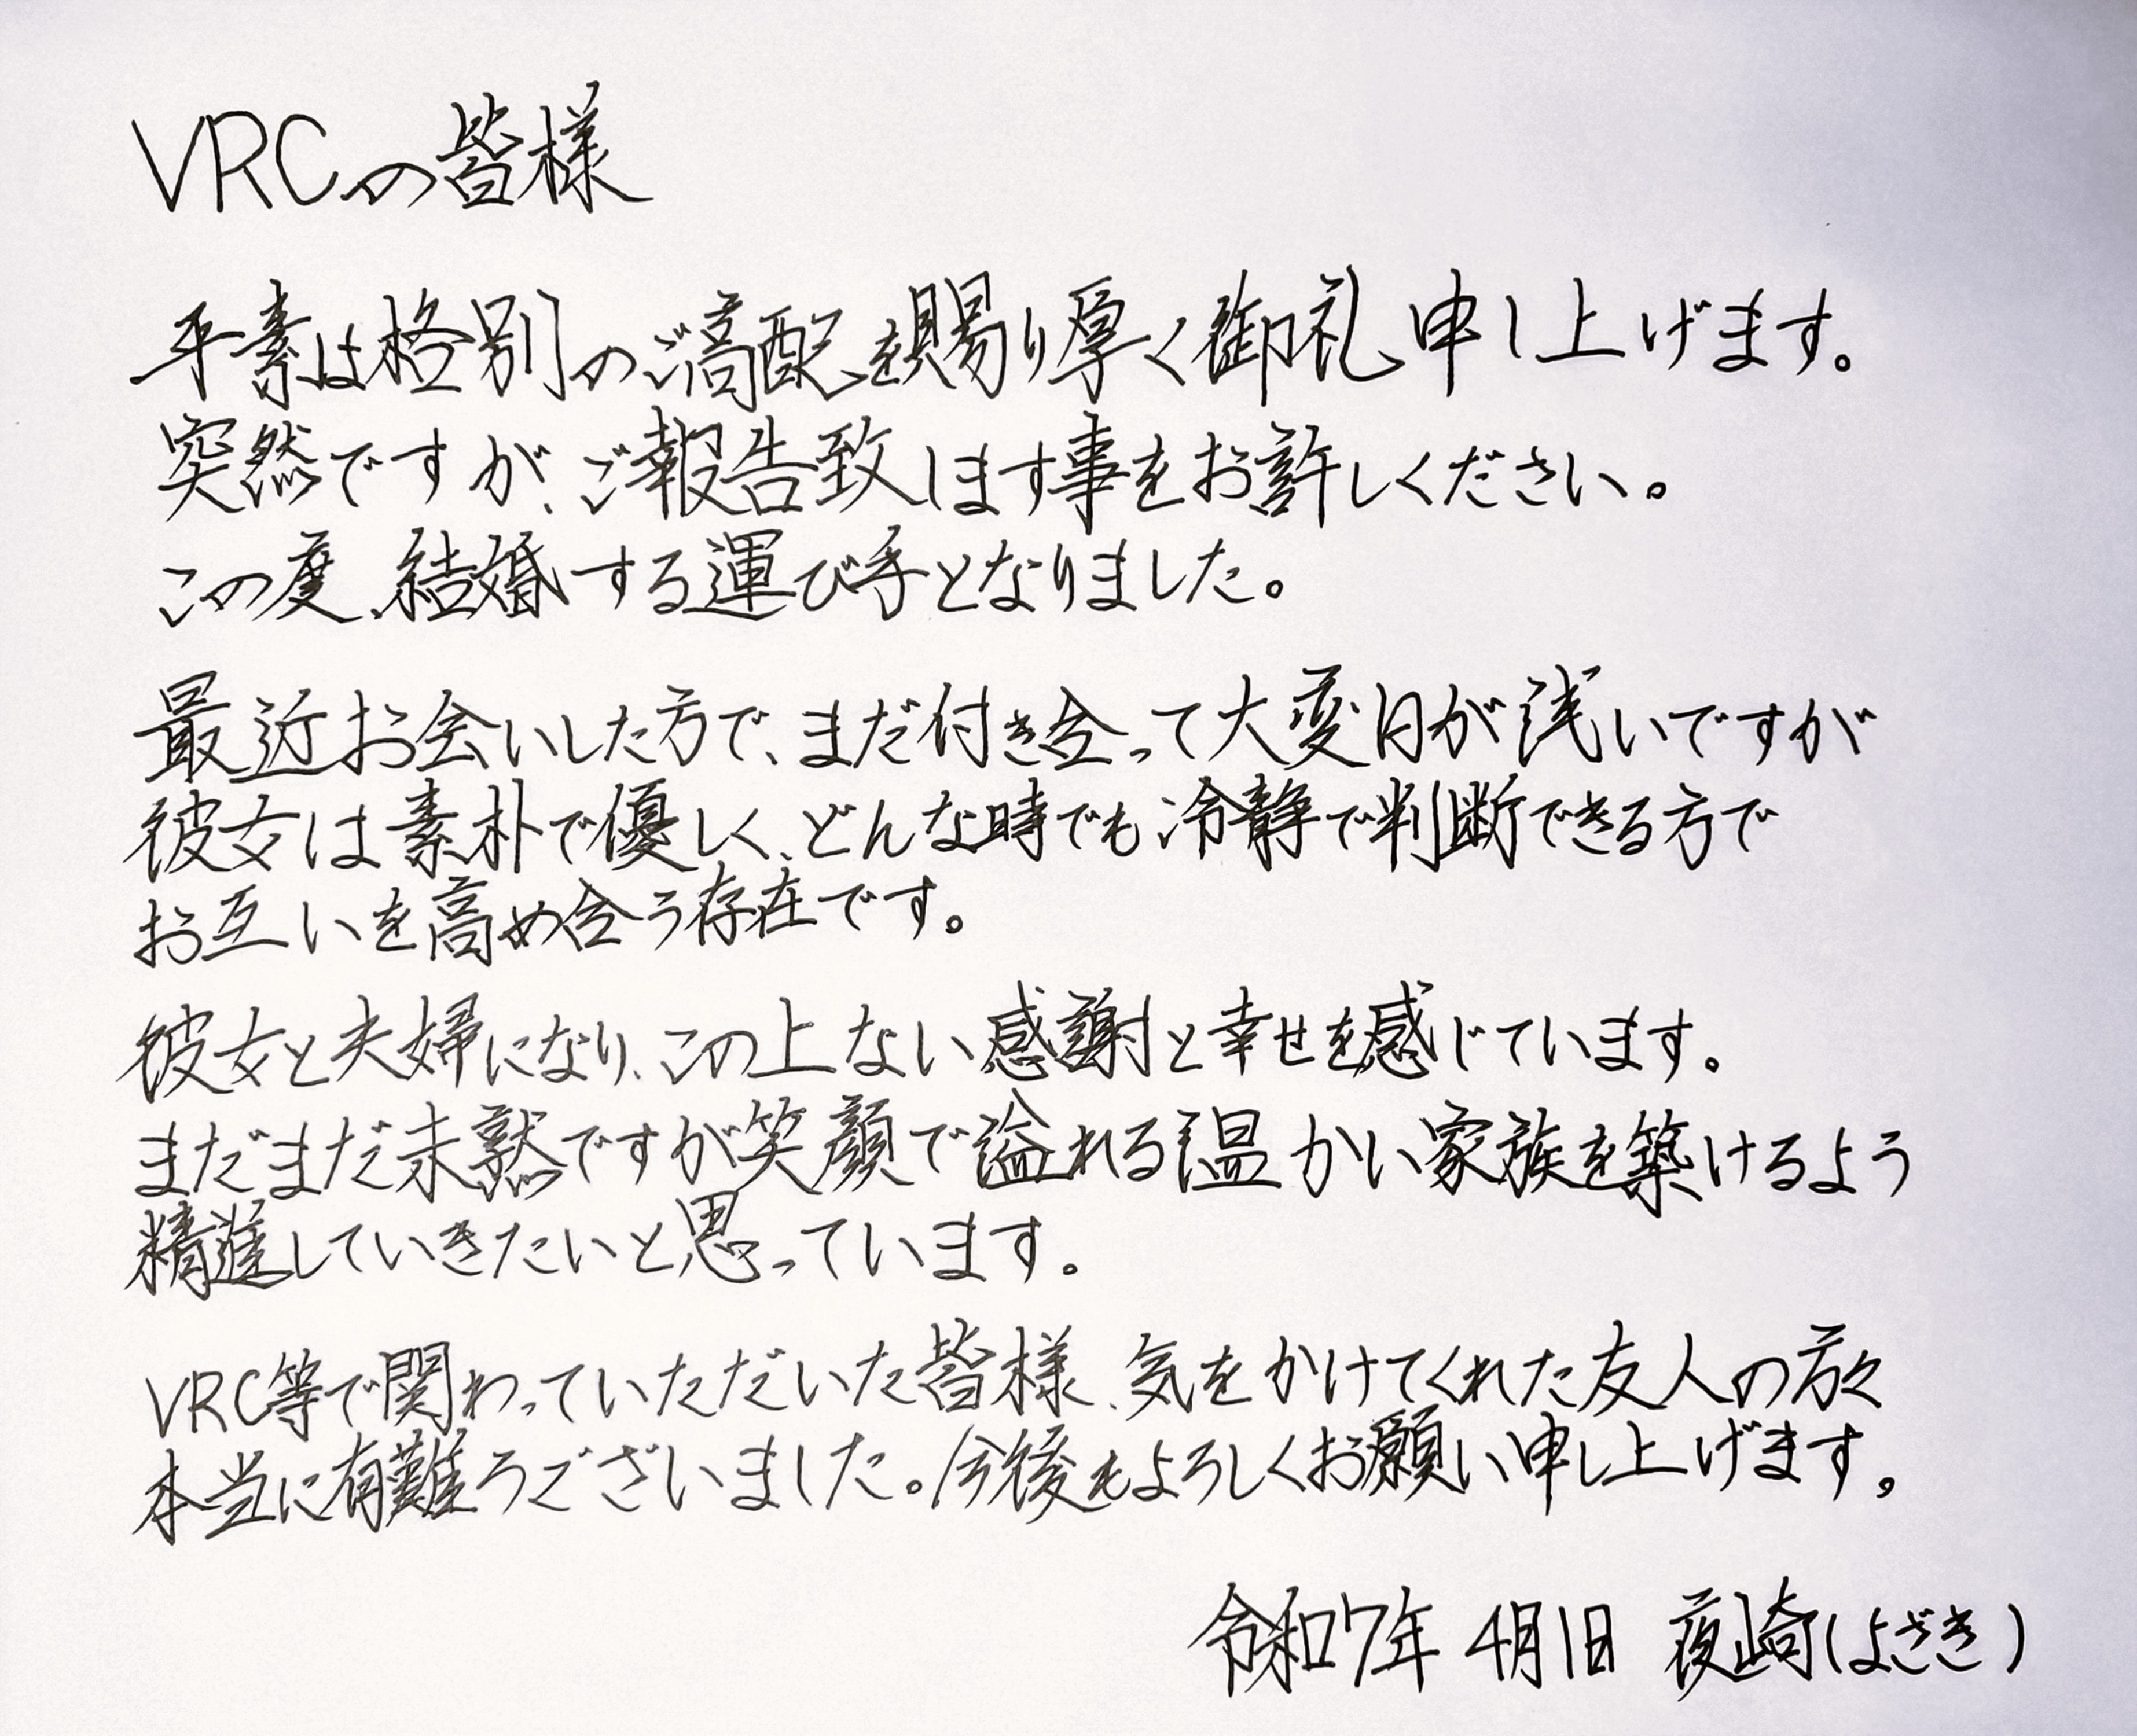 VRCの皆様
平素は格別のご高配を賜り厚く御礼申し上げます。
突然ですが、ご報告致します事をお許しください。
この度、結婚する運び手となりました。
最近お会いした方で、まだ付き合って大変日が浅いですが
彼女は素朴で優しく、どんな時でも冷静で判断できる方で
お互いを高め合う存在です。
彼女と夫婦になり、この上ない感謝と幸せを感じています。
まだまだ未熟ですが笑顔で溢れる温かい家族を築けるよう
精進していきたいと思っています。
VRC等で関わっていただいた皆様、気をかけてくれた友人の方々
本当に有難うございました。今後もよろしくお願い申し上げます。
令和7年 4月1日 夜崎(よざき)